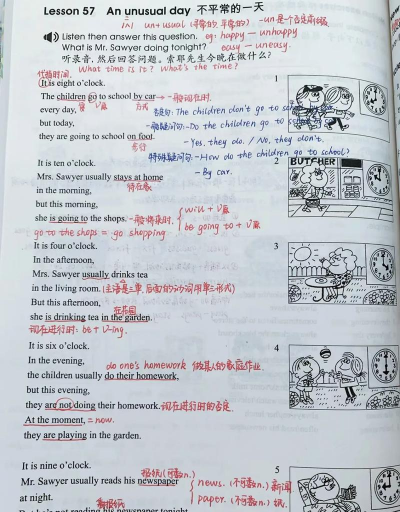 Lesson 57 An unusual day 不平常的一天
un+usual (平常的) -un是个否定前缀
Listen then answer this question. eg: happy — unhappy
What is Mr. Sawyer doing tonight? easy — uneasy.
听录音，然后回答问题。索耶先生今晚在做什么?
代指时间. What time is it? What's the time?
1
It is eight o'clock.
The children go to school by car → 一般现在时.
every day, 方式 否定句: The children don't go to
but today, 一般疑问句: -Do the children go to
they are going to school on foot. -Yes, they do. / No, they don't.
步行 特殊疑问句: -How do the children go to school?
-By car.
It is ten o'clock.
2
BUTCHER
Mrs. Sawyer usually stays at home
in the morning, 待在家
but this morning,
she is going to the shops. 一般将来时. { will + V原
be going to + V原
go to the shops = go shopping.
It is four o'clock.
3
In the afternoon,
Mrs. Sawyer usually drinks tea
in the living room.
But this afternoon, 在花园
she is drinking tea in the garden.
现在进行时: be + V-ing.
It is six o'clock.
4
In the evening, do one's homework 做某人的家庭作业.
the children usually do their homework,
but this evening,
they are not doing their homework. 现在进行时的否定
At the moment, = now.
they are playing in the garden.
It is nine o'clock.
5
Mr. Sawyer usually reads his newspaper { news. (不可数n.) 新闻
at night. paper. (不可数n.) 纸.